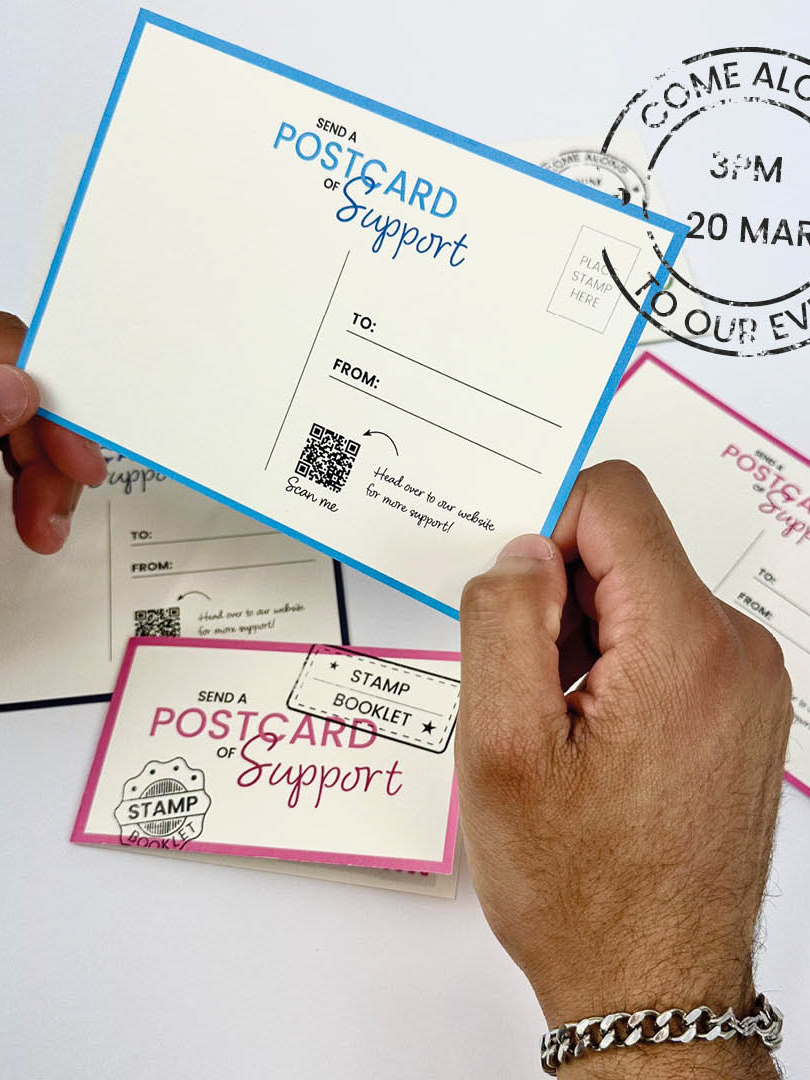 SEND A
POSTCARD
OF
Support
PLACE
STAMP
HERE
TO:
FROM:
Scan me
Head over to our website
for more support!
COME ALO
3PM
20 MAR
TO OUR EV
COME ALONG
Support
TO:
FROM:
Head over to our website
for more support!
SEND A
POSTCARD
OF
Support
STAMP
BOOKLET
STAMP
BOOKLET
SEND A
POSTC
OF
Supp
TO:
FROM: